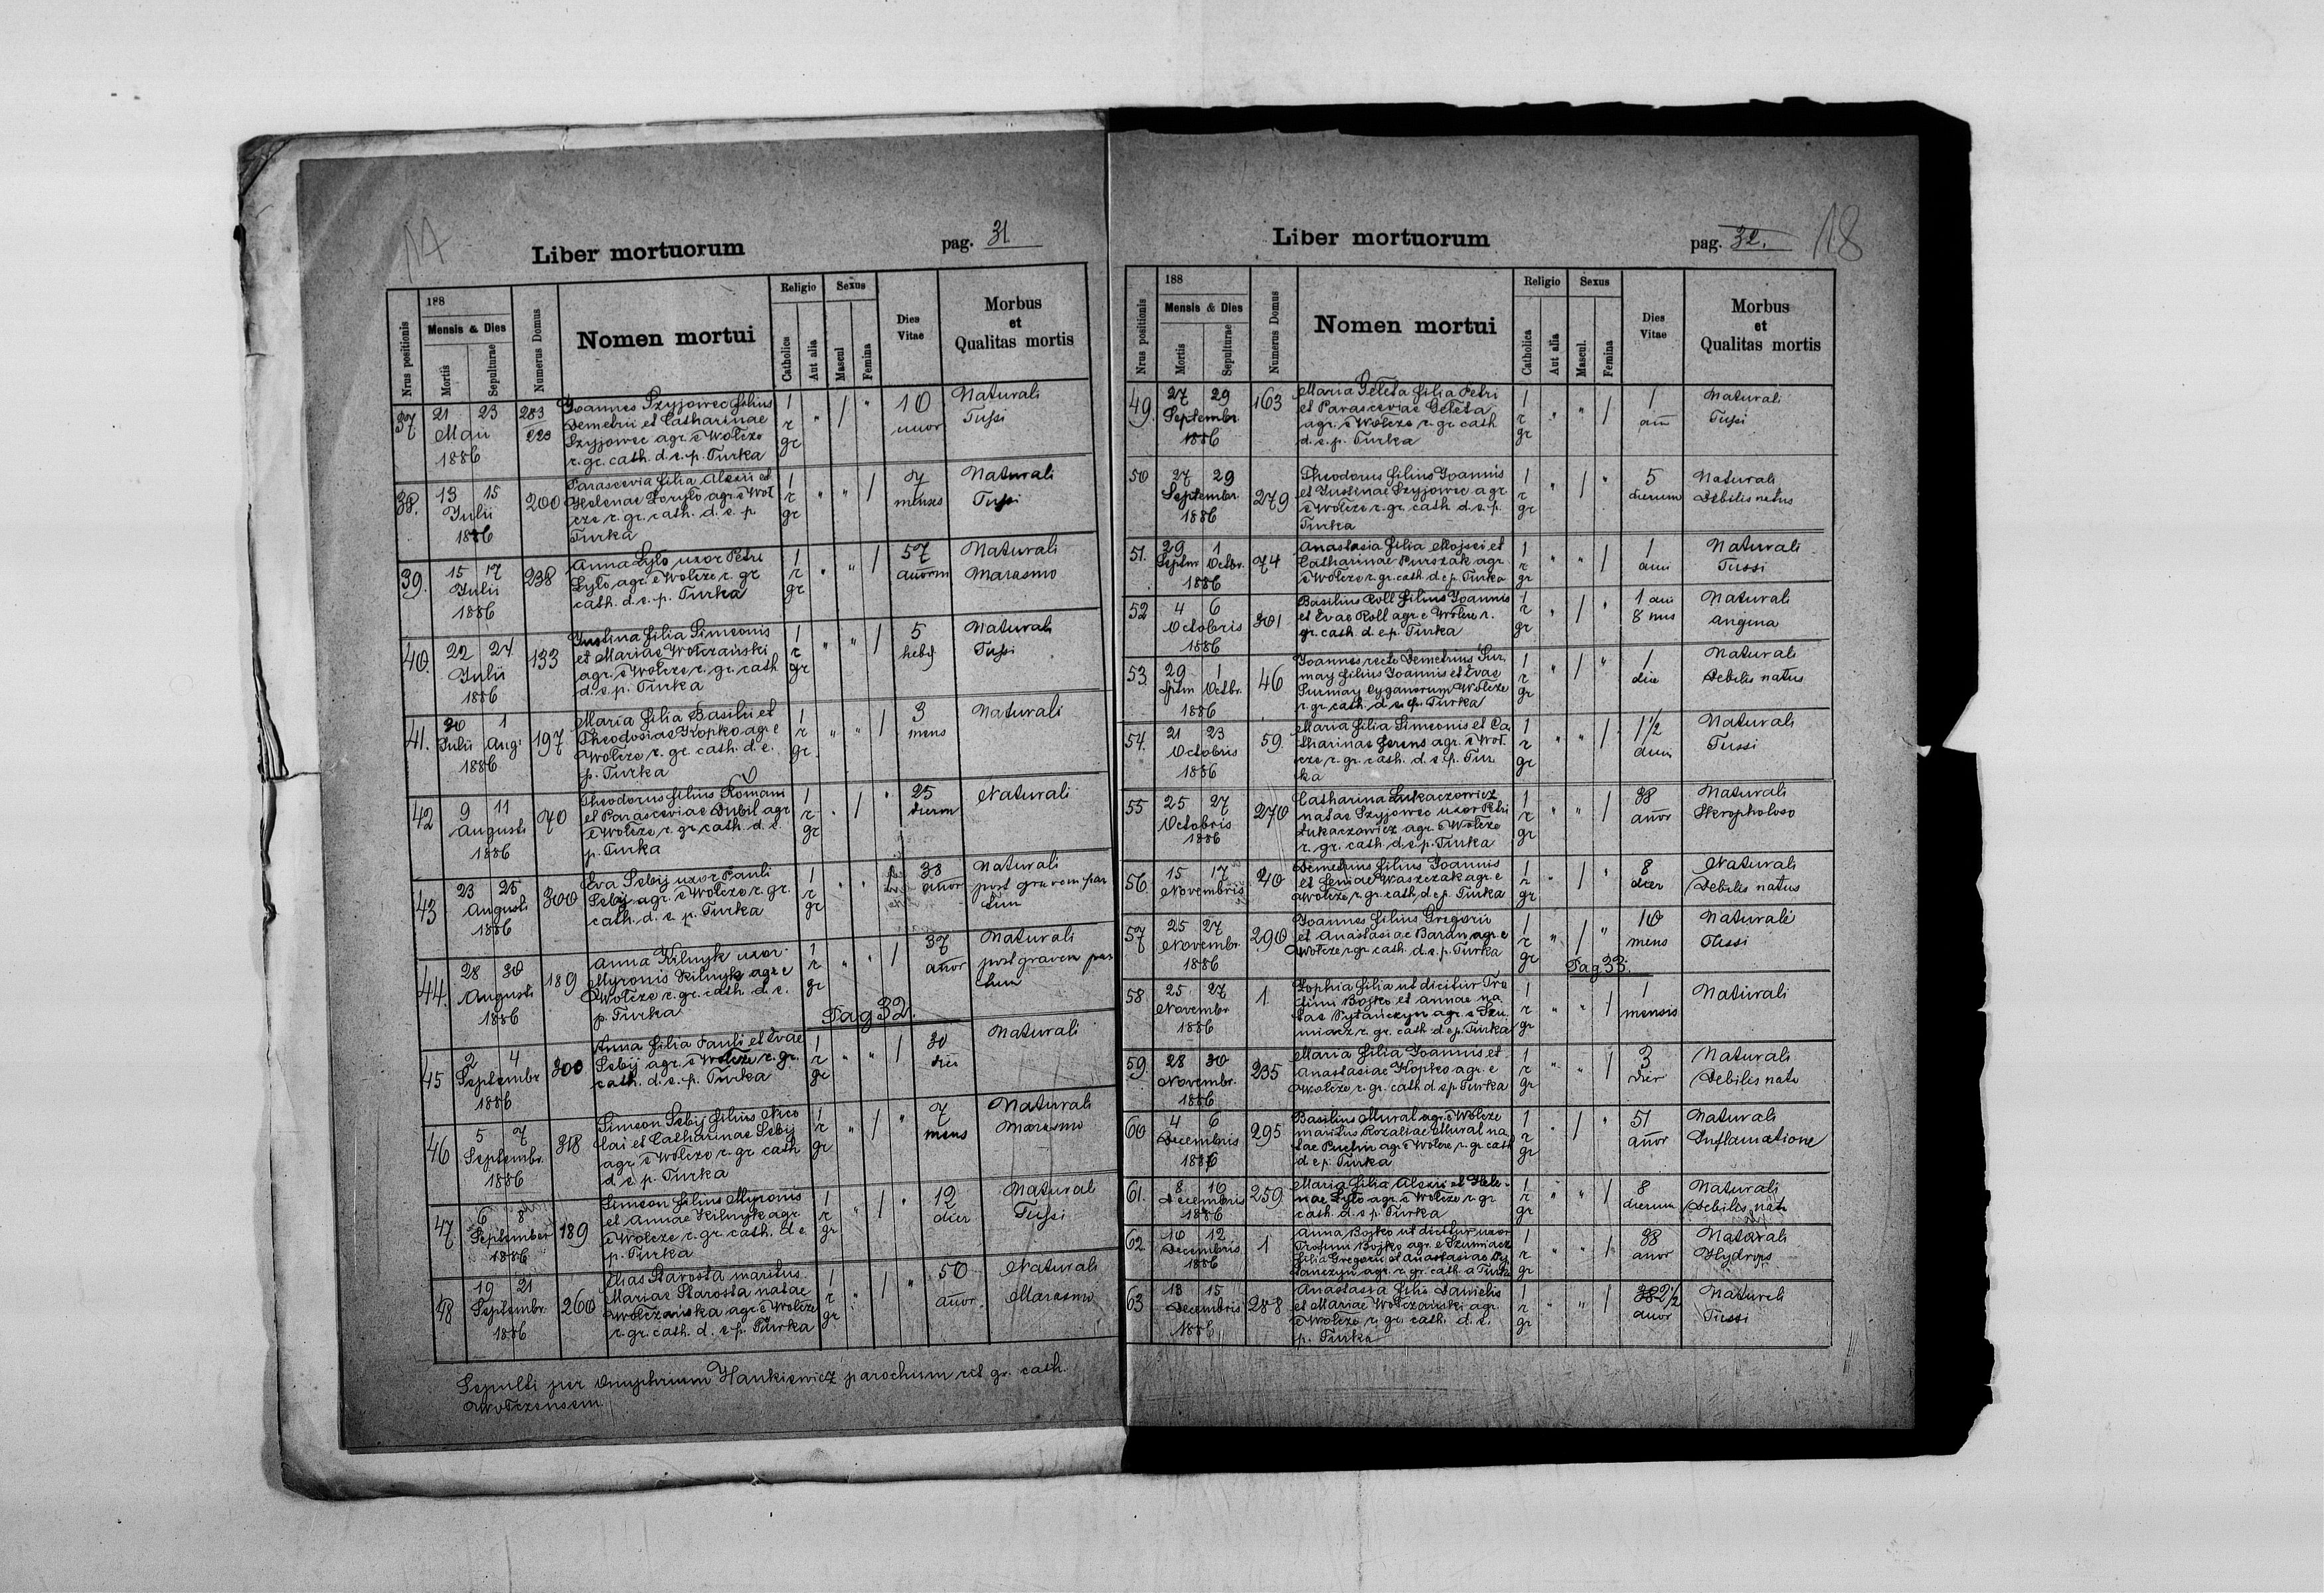 17
Liber mortuorum
pag. 31
Nrus positionis
188
Mensis & Dies
Mortis
Sepulturae
Numerus Domus
Nomen mortui
Religio
Catholica
Aut alia
Sexus
Mascul
Femina
Dies Vitae
Morbus
et
Qualitas mortis
37 21 23 Maii 1886 283
Joannes Szyjowec filius
Demetrii et Catharinae
Szyjowec agr. e Wołcze
r. gr. cath. d. e. p. Turka
1 r gr " / " 10 Naturali
Tussi
38. 13 15 Julii 1886 200
Parascevia filia Alexii et
Helenae Doryło agr. e Woł
cze r. gr. cath. d. e. p.
Turka
1 r gr " " / 7 menses Naturali
Tussi
39. 15 17 Julii 1886 238
Anna Syło uxor Petri
Syło agr. e Wołcze r. gr
cath. d. e. p. Turka
1 r gr " " / 57 Naturali
Marasmo
40. 22 24 Julii 1886 133
Justina filia Simeonis
et Mariae Wołczański
agr. e Wołcze r. gr. cath
d. e. p. Turka
1 r gr " " / 5 Naturali
Tussi
41. 30 1 Julii Aug. 1886 197
Maria filia Basilii et
Theodosiae Hopko agr. e
Wołcze r. gr. cath. d. e.
p. Turka
1 r gr. " " / 3 mens Naturali
42 9 11 Augusti 1886 70
Theodorus filius Romani
et Parasceviae Dubil agr
e Wołcze r. gr. cath. d. e.
p. Turka
1 r gr " / " 25 dierm Naturali
43 23 25 Augusti 1886 300
Eva Sebij uxor Pauli
Sebij agr. e Wołcze r. gr.
cath. d. e. p. Turka
1 r gr " " / 38 añor Naturali
post gravem par
tum
44. 28 30 Augusti 1886 189
Anna Kilnyk uxor
Myronis Kilnyk agr. e
Wołcze r. gr. cath. d. e.
p. Turka
1 r gr " " / 37 añor Naturali
post gravem par
tum
Pag 32.
45 2 4 Septembr 1886 300
Anna filia Pauli et Evae
Sebij agr. e Wołcze r. gr.
cath. d. e. p. Turka
1 r gr " " / 30 dier Naturali
46 5 7 Septembr. 1886 318
Simeon Sebij filius Nico
lai et Catharinae Sebij
agr. e Wołcze r. gr cath
d. e p. Turka
1 r gr " / " 7 mens Naturali
Marasmo
47 6 8 September 1886 189
Simeon filius Myronis
et Annae Kilnyk agr.
e Wołcze r. gr. cath. d e.
p. Turka
1 r gr " / " 12 dier Naturali
Tussi
48 19 21 Septembr. 1886 260
Elias Starosta maritus
Mariae Starosta natae
Wołczańska agr. e Wołcze
r. gr. cath. d. e p. Turka
1 r gr " / " 50 añor. Naturali
Marasmo
Sepulti per Onuphrium Hankiewicz parochum rit gr. cath.
Wołczensem
18
Liber mortuorum
pag. 32.
Nrus positionis
188
Mensis & Dies
Mortis
Sepulturae
Numerus Domus
Nomen mortui
Religio
Catholica
Aut alia
Sexus
Mascul.
Femina
Dies Vitae
Morbus
et
Qualitas mortis
49. 27 29 Septembr 1886 163
Maria Geleta filia Petri
et Parasceviae Geleta
agr. e Wołcze r. gr cath
d. e. p. Turka
1 r gr " " / 1 Naturali
Tussi
50 27 29 Septembr 1886 279
Theodorus filius Joannis
et Justinae Szyjowec agr
e Wołcze r. gr. cath d. e. p.
Turka
1 r gr " / " 5 dierum Naturali
Debilis natus
51. 29 1 Septm Octbr. 1886 74
Anastasia filia Mojsei et
Catharinae Purszak agr.
e Wołcze r. gr. cath d. e p. Turka
1 r gr " " / 1 Naturali
Tussi
52 4 6 Octobris 1886 301
Basilius Roll filius Joannis
et Evae Roll agr. e Wołcze r.
gr. cath. d. e p. Turka
1 r gr " / " 1 8 Naturali
Angina
53. 29 1 Octbr. 1886 46
Joannes recte Demetrius Sur
may filius Joannis et Evae
Surmay cyganorum Wołcze
r. gr. cath. d e p. Turka
1 r gr " / " 1 die Naturali
Debilis natus
54. 21 23 Octobris 1886 59
Maria filia Simeonis et Ca
tharinae Ferens agr. e Woł.
cze r. gr. cath. d. e p. Tur
ka
1 r gr " " / 1 1/2 Naturali
Tussi
55 25 27 Octobris 1886 270
Catharina Łukaczowicz
natae Szyjowec uxor Petri
Łukaczowicz agr. e Wołcze
r. gr. cath. d. e. p. Turka
1 r gr " " / 38 añor Naturali
Skropholoso
56 15 17 Novembris 40
Demetrius filius Joannis
et Feniae Waszczak agr. e
Wołcze r. gr. cath. d e p. Turka
1 r gr " / " 8 dier Naturali
Debilis natus
57 25 27 Novembr. 1886 290
Joannes filius Gregorii
et Anastasiae Baran agr. e
Wołcze r gr. cath. d. e. p. Turka
1 r gr " / " 10 mens Naturali
Tussi
Pag 33.
58. 25 27 Novembr. 1886 1.
Sophia filia ut dicitur Tro
fimi Bojko et Annae na
tae Pytańczyn agr. e Szu
miacz r. gr. cath d e p. Turka
1 r gr " " / 1 mensis Naturali
59. 28 30 Novembr. 1886 235
Maria filia Joannis et
Anastasiae Hopko agr. e
Wołcze r. gr. cath d e p Turka
1 r gr " " / 3 dier Naturali
Debilis nata
60 4 6 Decembris 1886 295
Basilius Mural agr. e Wołcze
maritus Rozaliae Mural na
tae agr. e Wołcze r. gr cath
d e p. Turka
1 r gr " / " 51 añor Naturali
Inflamatione
61. 8 10 Decembris 1886 259
Maria filia Alexii et Hele
nae Syło agr. e Wołcze r. gr
cath. d. e p. Turka
1 r gr " " / 8 dierum Naturali
Debilis nata
62. 10 12 Decembris 1886 1
Anna Bojko ut dicitur uxor
Trofimi Bojko agr. e Szumiacz
filia Gregorii et Anastasiae Py
tańczyn agr. r. gr. cath. a Turka
1 r gr " " / 38 añor Naturali
Hydrops
63 13 15 Decembris 1886 288
Anastasia filia Danielis
et Mariae Wołczański agr.
e Wołcze r. gr. cath. d. e.
p. Turka
1 r gr " " / 2 1/2 añor Naturali
Tussi